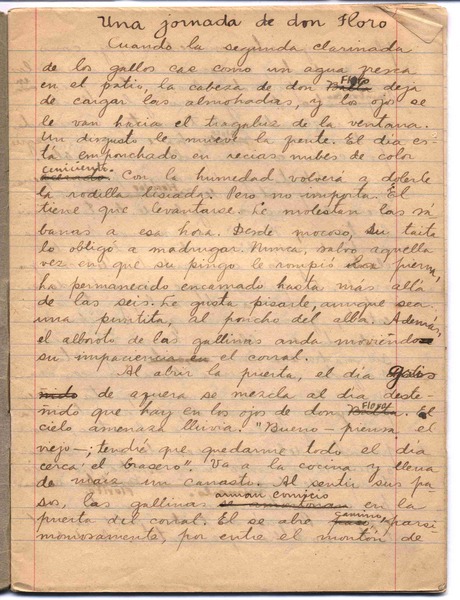 Una jornada de don Floro
Cuando la segunda clarinada
de los gallos cae como un agua fresca
en el patio, la cabeza de don Floro deja
de cargar las almohadas, y los ojos se
le van hacia el tragaluz de la ventana.
Un disgusto le mueve la frente. El día es-
tá emponchado en recias nubes de color
ceniciento. Con la humedad volverá a dolerle
la rodilla lisiada. Pero no importa. El
tiene que levantarse. Le molestan las sá-
banas a esa hora. Desde mocoso, su taita
lo obligó a madrugar. Nunca, salvo aquella
vez en que su pingo le rompió una pierna,
ha permanecido encamado hasta más allá
de las seis. Le gusta pisarle, aunque sea
una puntita, al poncho del alba. Además,
el alboroto de las gallinas anda moviendo
su impaciencia en el corral.
Al abrir la puerta, el día gris
de afuera se mezcla al día deste-
ñido que hay en los ojos de don Floro. El
cielo amenaza lluvia. "Bueno – piensa el
viejo –; tendré que quedarme todo el día
cerca 'el brasero". Va a la cocina y llena
de maíz un canasto. Al sentir sus pa-
sos, las gallinas arman comicio en la
puerta del corral. El se abre camino, parsi-
moniosamente, por entre el montón de